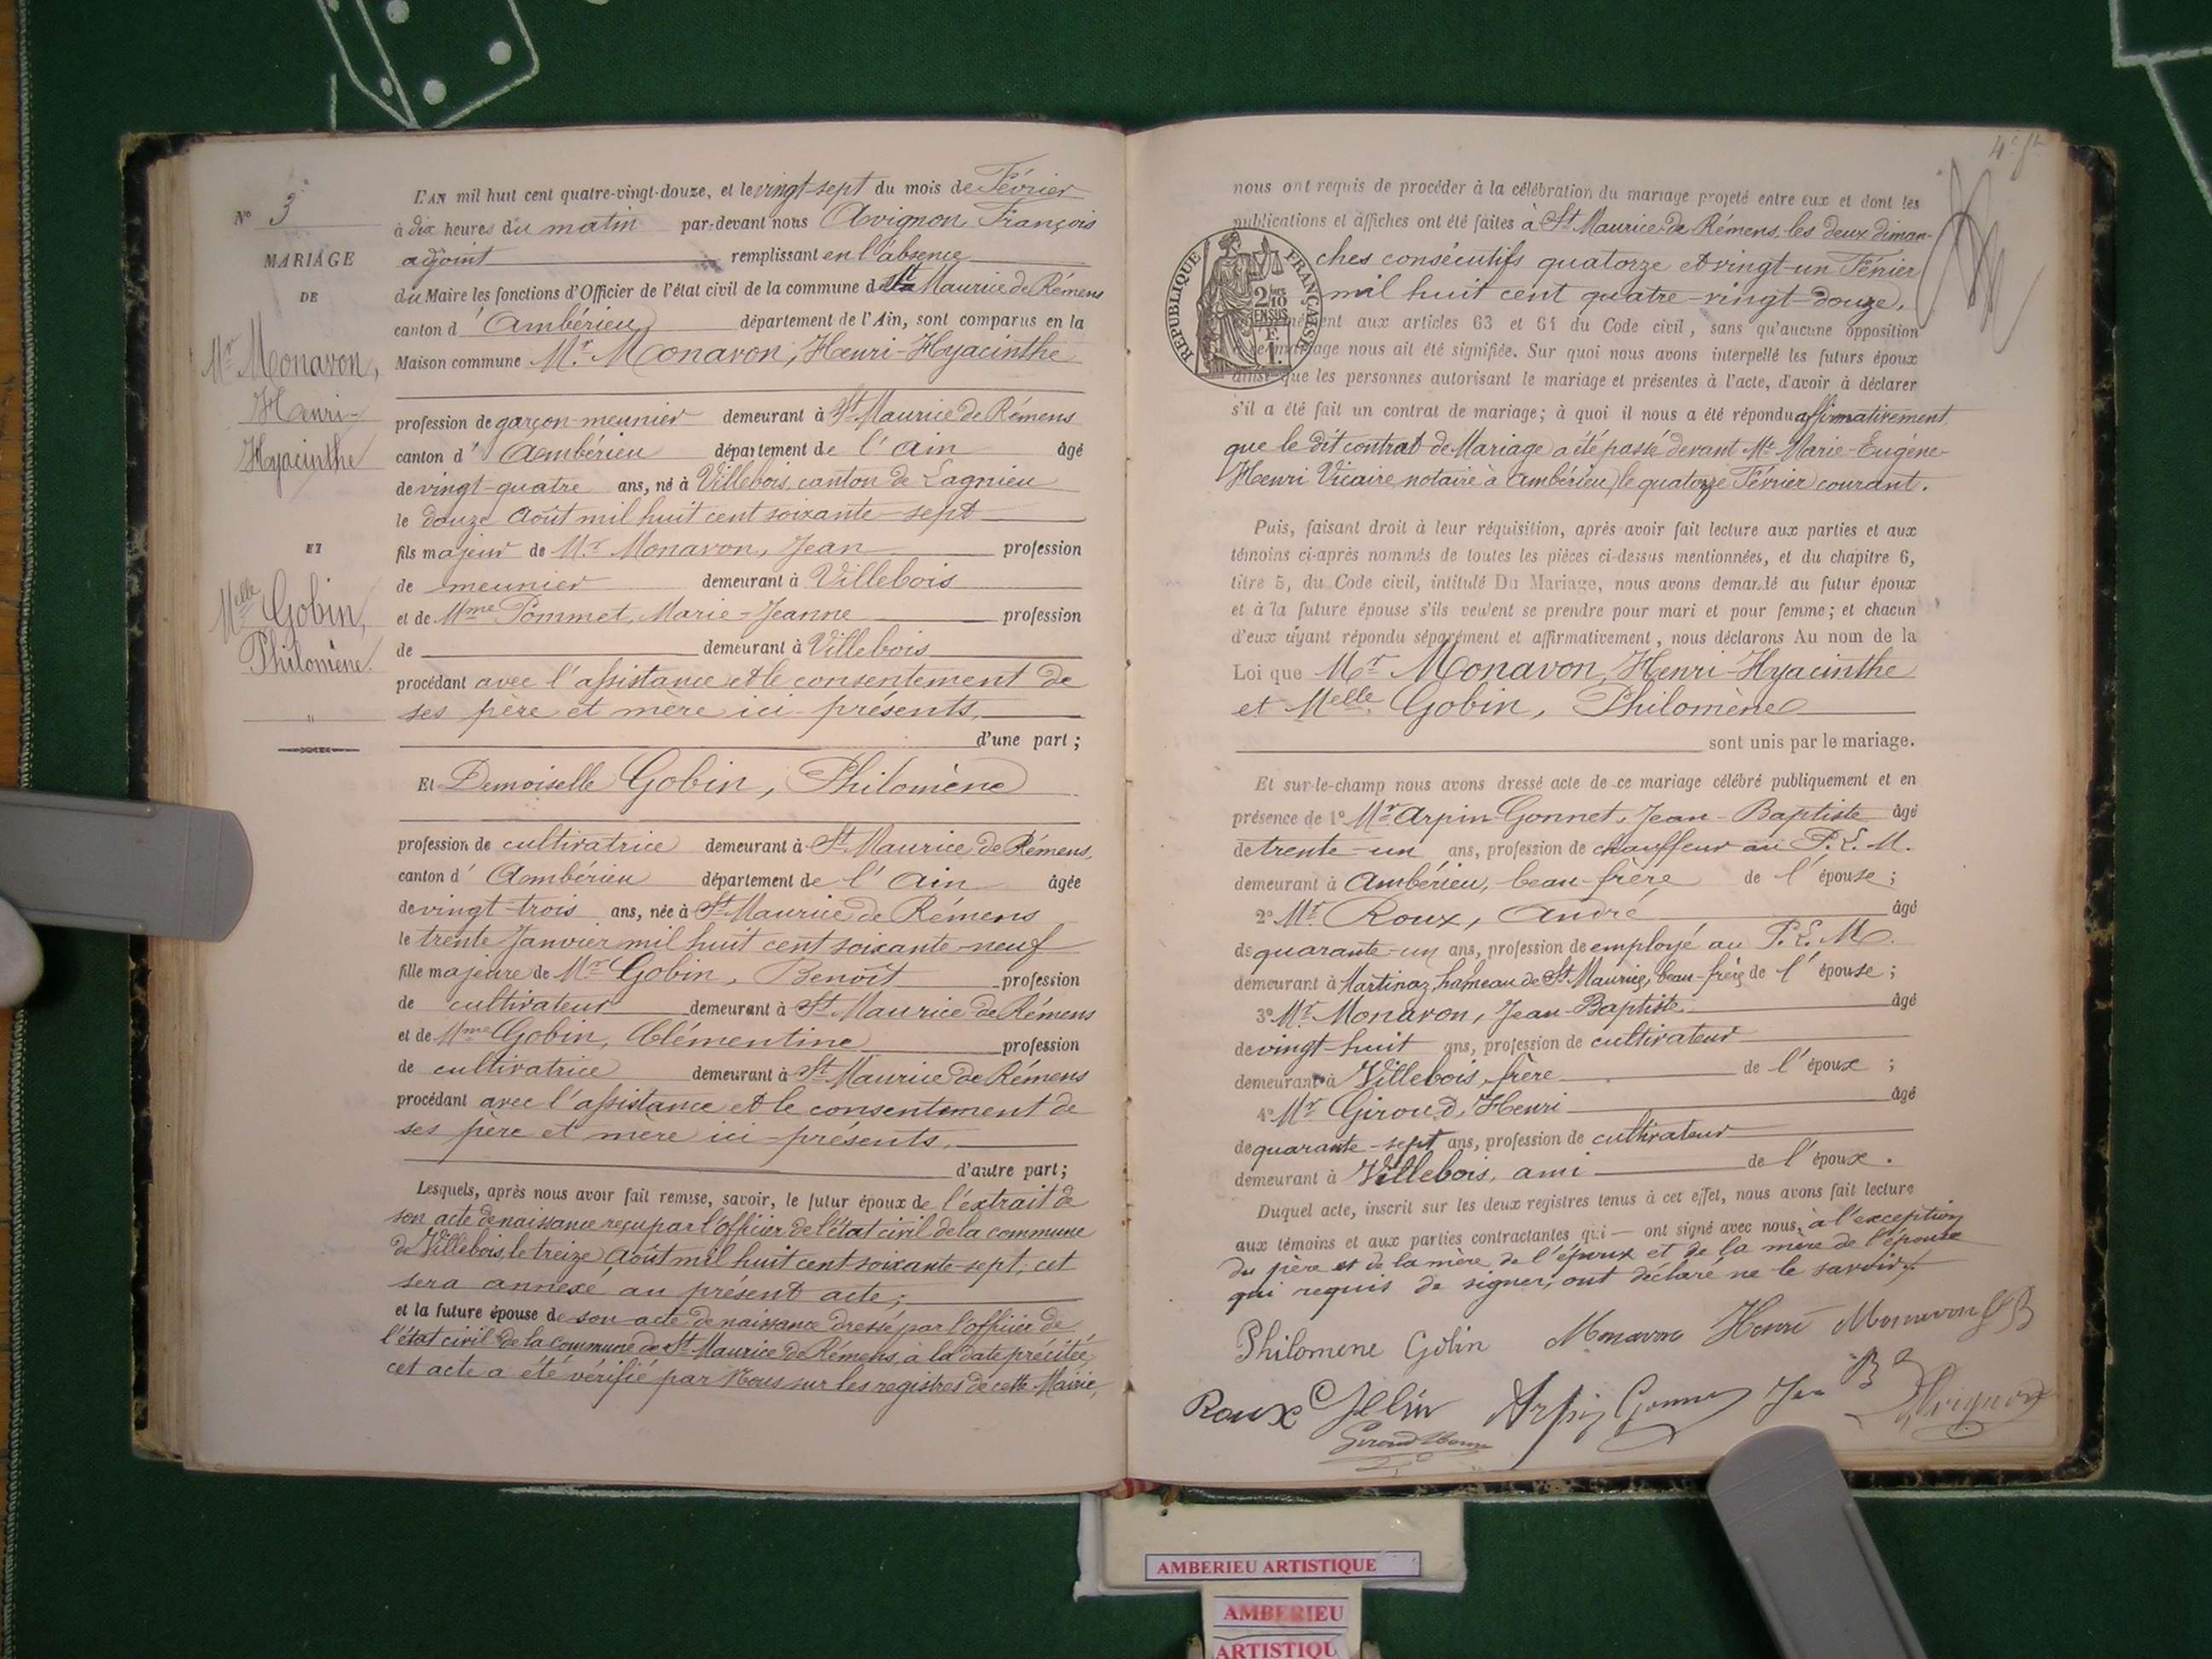 N° 3
MARIAGE
DE
Mr Monavon,
Henri-
Hyacinthe
ET
Melle Gobin,
Philomène.
"
L'AN mil huit cent quatre-vingt-douze, et le vingt-sept du mois de Février
à dix heures du matin par-devant nous Avignon, François
adjoint remplissant en l'absence
du Maire les fonctions d'Officier de l'état civil de la commune de St Maurice de Rémens
canton d' Ambérieu département de l'Ain, sont comparus en la
Maison commune Mr. Monavon, Henri-Hyacinthe
profession de garçon meunier demeurant à St Maurice de Rémens
canton d' Ambérieu département de l'Ain âgé
de vingt-quatre ans, né à Villebois, canton de Lagnieu
le douze Août mil huit cent soixante-sept
fils majeur de Mr. Monavon, Jean profession
de meunier demeurant à Villebois
et de Mme Pommet, Marie-Jeanne profession
de demeurant à Villebois
procédant avec l'assistance et le consentement de
ses père et mère ici présents,
d'une part ;
Et Demoiselle Gobin, Philomène
profession de cultivatrice demeurant à St Maurice de Rémens,
canton d' Ambérieu département de l'Ain âgée
de vingt-trois ans, née à St Maurice de Rémens
le trente Janvier mil huit cent soixante-neuf
fille majeure de Mr Gobin, Benoît profession
de cultivateur demeurant à St Maurice de Rémens
et de Mme Gobin, Clémentine profession
de cultivatrice demeurant à St Maurice de Rémens
procédant avec l'assistance et le consentement de
ses père et mère ici présents,
d'autre part ;
Lesquels, après nous avoir fait remise, savoir, le futur époux de l'extrait de
son acte de naissance reçu par l'officier de l'état civil de la commune
de Villebois, le treize Août mil huit cent soixante-sept, cet
sera annexé au présent acte ;
et la future épouse de son acte de naissance dressé par l'officier de
l'état civil de la commune de St Maurice de Rémens, à la date précitée,
cet acte a été vérifié par Nous sur les registres de cette Mairie,
nous ont requis de procéder à la célébration du mariage projeté entre eux et dont les
publications et affiches ont été faites à St Maurice de Rémens, les deux diman-
ches consécutifs quatorze et vingt-un Février
mil huit cent quatre-vingt-douze,
RÉPUBLIQUE FRANÇAISE
2/10 EN SUS
1 F.
aux articles 63 et 64 du Code civil, sans qu'aucune opposition
nous ait été signifiée. Sur quoi nous avons interpellé les futurs époux
ainsi que les personnes autorisant le mariage et présentes à l'acte, d'avoir à déclarer
s'il a été fait un contrat de mariage ; à quoi il nous a été répondu affirmativement,
que le dit contrat de Mariage a été passé devant Me Marie-Eugène-
Henri Vicaire, notaire à Ambérieu, le quatorze Février courant.
Puis, faisant droit à leur réquisition, après avoir fait lecture aux parties et aux
témoins ci-après nommés de toutes les pièces ci-dessus mentionnées, et du chapitre 6,
titre 5, du Code civil, intitulé Du Mariage, nous avons demandé au futur époux
et à la future épouse s'ils veulent se prendre pour mari et pour femme ; et chacun
d'eux ayant répondu séparément et affirmativement, nous déclarons Au nom de la
Loi que Mr Monavon, Henri-Hyacinthe
et Melle Gobin, Philomène
sont unis par le mariage.
Et sur-le-champ nous avons dressé acte de ce mariage célébré publiquement et en
présence de 1° Mr Arpin-Gonnet, Jean-Baptiste âgé
de trente-un ans, profession de chauffeur au P.L.M.
demeurant à Ambérieu, beau-frère de l'épouse ;
2° Mr. Roux, André âgé
de quarante-un ans, profession de employé au P.L.M.
demeurant à Martinaz, hameau de St Maurice, beau-frère de l'épouse ;
3° Mr. Monavon, Jean-Baptiste âgé
de vingt-huit ans, profession de cultivateur
demeurant à Villebois, frère de l'époux ;
4° Mr Giroud, Henri âgé
de quarante-sept ans, profession de cultivateur
demeurant à Villebois, ami de l'époux.
Duquel acte, inscrit sur les deux registres tenus à cet effet, nous avons fait lecture
aux témoins et aux parties contractantes qui — ont signé avec nous, à l'exception
du père et de la mère de l'époux et de la mère de l'épouse
qui requis de signer, ont déclaré ne le savoir.
Philomene Gobin Monavon Henri Monavon J B
Roux Arpin Gonnet Jean Bte Avignon
Giroud Henri
AMBERIEU ARTISTIQUE
AMBERIEU
ARTISTIQU